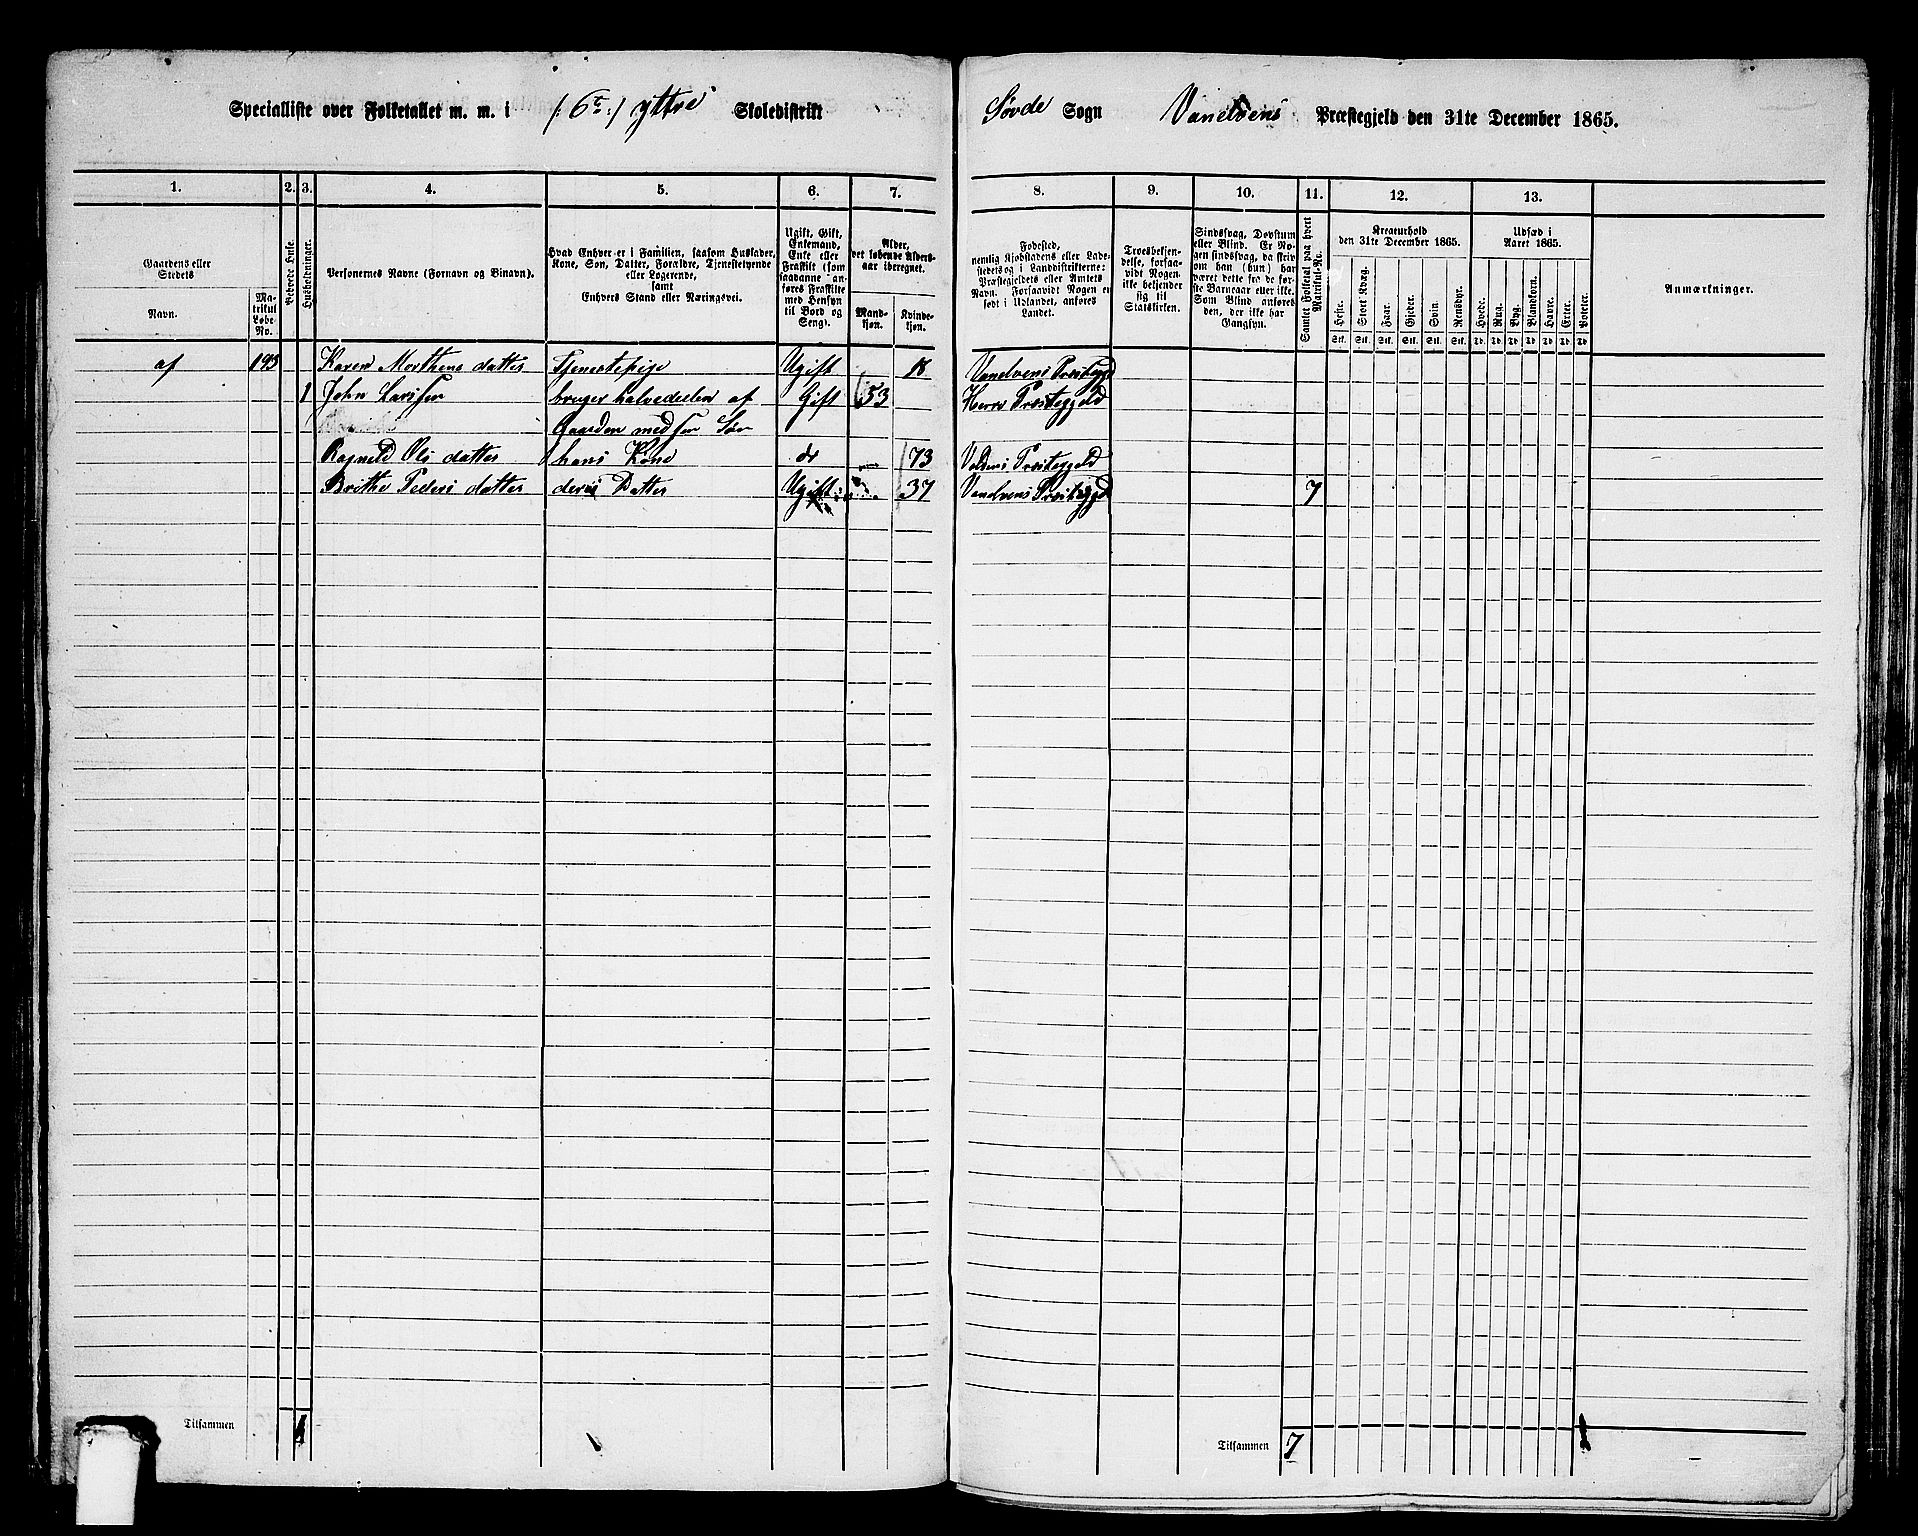 Specialliste over Folketallet m. m. i /:6te:/ yttre Skoledistrikt Søvde Sogn Vanelvens Præstegjeld den 31te December 1865.
1. 2. 3. 4. 5. 6. 7. 8. 9. 10. 11. 12. 13.
Gaardens eller Stedets
Navn.
Matrikul Løbe-No.
Bebvede Huse.
Husholdninger.
Personernes Navne (Fornavn og Binavn).
Hvad Enhver er i Familien, saasom Husfader,
Kone, Søn, Datter, Forældre, Tjenestetyende
eller Logerende,
samt
Enhvers Stand eller Næringsvei.
Ugift, Gift,
Enkemand,
Enke eller
Fraskilt (som
saadanne anføres Fraskilte
med Hensyn
til Bord og
Seng).
Alder,
det løbende Alders-
aar iberegnet.
Mand-
kjøn.
Kvinde-
kjøn.
Fødested,
nemlig Kjøbstadens eller Lade-
stedets og i Landdistrikterne:
Præstegjeldets eller Amtets
Navn. Forsaavidt Nogen er
født i Udlandet, anføres
Landet.
Troesbekjen-
delse, forsaa-
vidt Nogen
ikke bekjender
sig til
Statskirken.
Sindssvag, Døvstum
eller Blind. Er No-
gen sindssvag, da skriv
om han (hun) har
været dette fra de før-
ste Barneaar eller ikke.
Som Blind anføres
den, der ikke har
Gangsyn.
Samlet Folketal paa hvert
Matrikul-No.
Kreaturhold
den 31te December 1865.
Heste. Stort Kvæg. Faar. Gjeter. Svin. Rensdyr.
Stk. Stk. Stk. Stk. Stk. Stk.
Udsæd i
Aaret 1865.
Hvede. Rug. Byg. Blandkorn. Havre. Erter. Poteter.
Td. Td. Td. Td. Td. Td. Td.
Anmærkninger.
af 193 Karen Morthens datter Tjenestepige Ugift 18 Vanelvens Præstegjd
1 John Larssen bruger halvedelen af Gift 53 Herrø Præstegjeld
Gaarden med sin Søn
Ragnild Ols datter hans Kone do 73 Voldens Præstegjeld
Brithe Peders datter deres Datter Ugift 37 Vanelvens Præstegjd 7
Tilsammen 1
Tilsammen 7